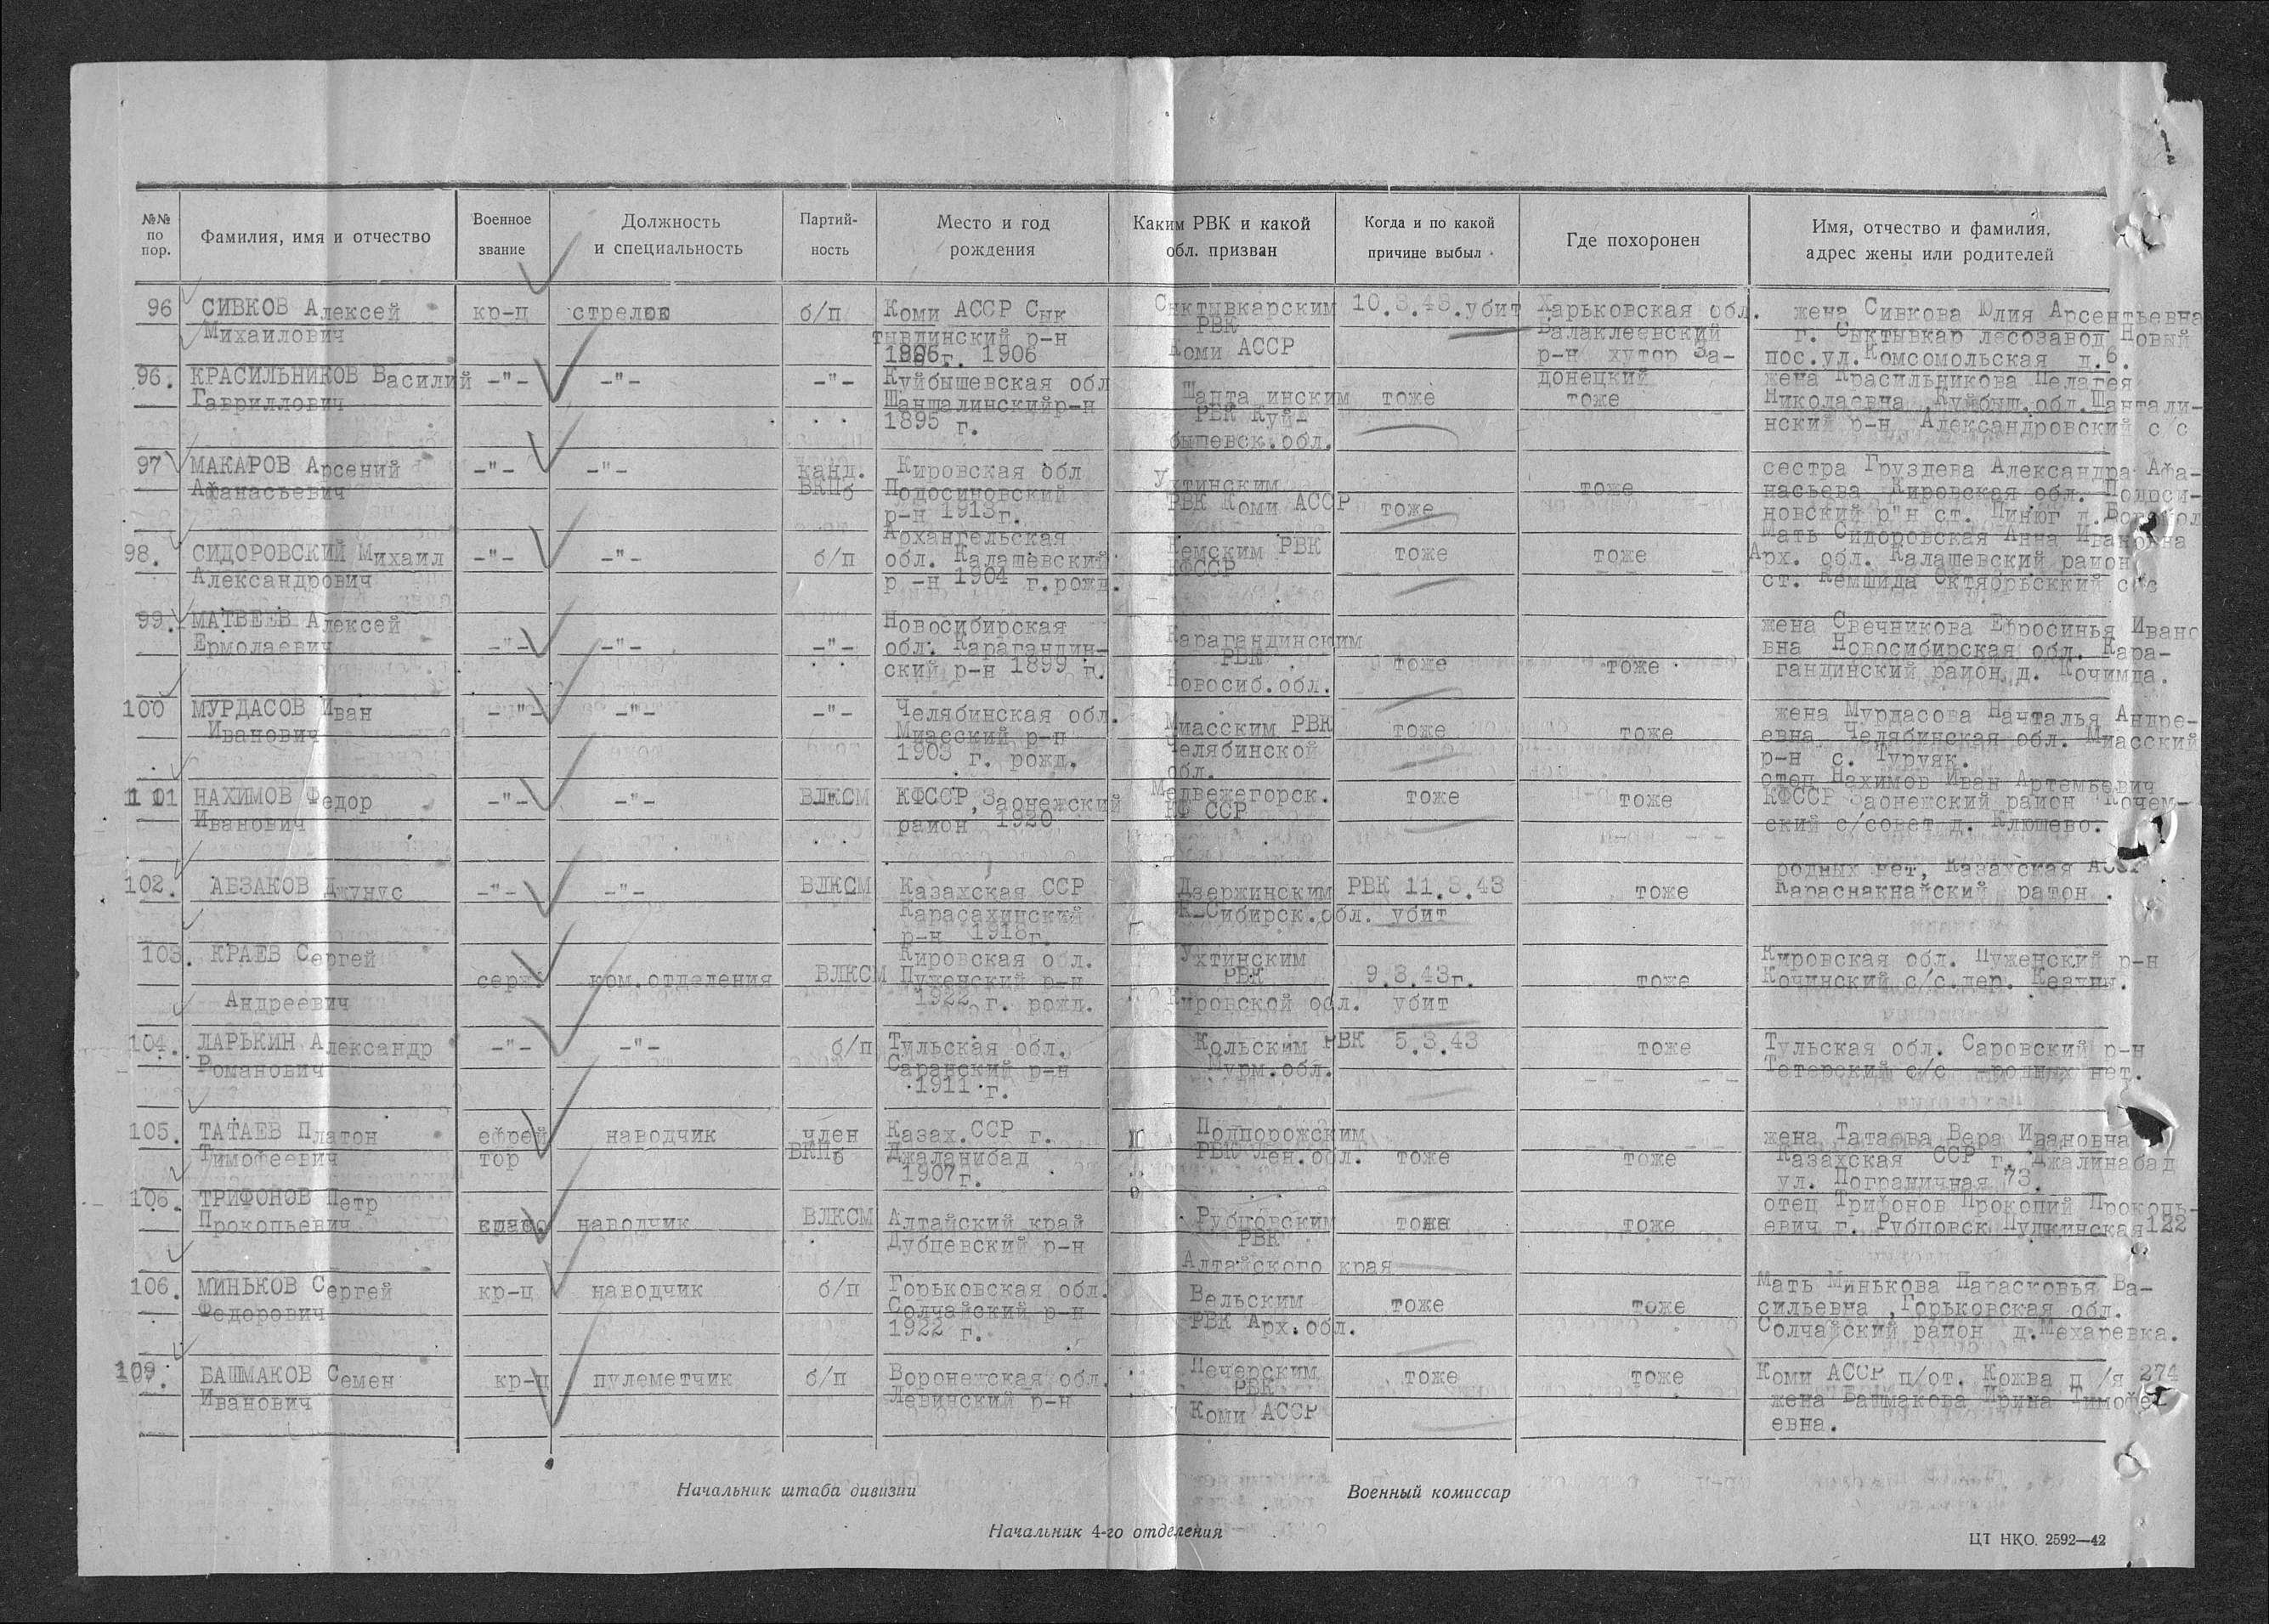 №№ по пор.
Фамилия, имя и отчество
Военное звание
Должность и специальность
Партий- ность
Место и год рождения
Каким РВК и какой обл. призван
Когда и по какой причине выбыл
Где похоронен
Имя, отчество и фамилия, адрес жены или родителей
96 СИВКОВ Алексей кр-ц стрелок б/п Коми АССР Сык Сыктывкарским 10.3.43.убит Харьковская обл. жена Сивкова Юлия Арсентьевна
Михаилович тывдинский р-н РВК Балаклеевский г. Сыктывкар лесозавод Новый
1906 Коми АССР р-н хутор За- пос.ул.Комсомольская д.6.
96. КРАСИЛЬНИКОВ Василий -"- -"- -"- Куйбышевская обл донецкий жена Красильникова Пелагея
Гавриллович Шанталинскийр-н Шанта инским тоже тоже Николаевна Куйбыш.обл.Шантали-
1895 г. РВК Куй- нский р-н Александровский с/с
бышевск.обл.
97 МАКАРОВ Арсений -"- -"- канд. Кировская обл Ухтинским сестра Груздева Александра Афа-
Афанасьевич ВКПб Подосиновский РВК Коми АССР тоже насьева Кировская обл. Подоси-
р-н 1913г. тоже новский р"н ст. Пинюг
98. СИДОРОВСКИЙ Михаил -"- -"- б/п Архангельская Кемским РВК тоже тоже Мать Сидоровская Анна Ивановна
Александрович обл. Калашевский КФССР Арх. обл. Калашевский район
р -н 1904 г.рожд. ст. Кемшида Октябрьсккий с/с
99. МАТВЕЕВ Алексей Новосибирская жена Свечникова Ефросинья Ивано
Ермолаевич -"- -"- -"- обл. Карагандин- Карагандинским РВК вна Новосибирская обл. Кара-
ский р-н 1899 г. Новосиб.обл. тоже тоже гандинский район д. Кочимда.
100 МУРДАСОВ Иван -"- -"- -"- Челябинская обл. Миасским РВК тоже тоже жена Мурдасова Начталья Андре-
Иванович Миасский р-н Челябинской евна Челябинская обл. Миасский
1903 г. рожд. обл. р-н с. Туруяк.
101 НАХИМОВ Федор -"- -"- ВЛКСМ КФССР,Заонежский Медвежегорск. тоже тоже отец Нахимов Иван Артемьевич
Иванович район 1920 КФ ССР КФССР Заонежский район Кочем-
ский с/совет д. Клюшево.
102. АБЗАКОВ Джунус -"- -"- ВЛКСМ Казахская ССР Дзержинским РВК 11.3.43 тоже родных нет, Казахская АССР
Карасахинский Н-Сибирск.обл. убит Караснакнайский ратон.
р-н 1918г.
103. КРАЕВ Сергей Кировская обл. Ухтинским Кировская обл. Пуженский р-н
серж ком.отделения ВЛКСМ Пуженский р-н РВК 9.3.43г. тоже Кочинский с/с.дер.
Андреевич 1922 г. рожд. Кировской обл. убит
104. ЛАРЬКИН Александр -"- -"- б/п Тульская обл. Кольским РВК 5.3.43 тоже Тульская обл. Саровский р-н
Романович Саранский р-н Мурм.обл. Татарский с/с -родных нет.
1911 г.
105. ТАТАЕВ Платон ефрей наводчик член Казах.ССР г. Подпорожским жена Татаева Вера Ивановна
Тимофеевич тор ВКПб Джаланибад РВК Лен.обл. тоже тоже Казахская ССР г. Джалинабад
1907г. ул. Пограничная 73.
106. ТРИФОНОВ Петр отец Трифонов Прокопий Прокопь-
Прокопьевич наводчик ВЛКСМ Алтайский край Рубцовским тоже тоже евич г. Рубцовск Пушкинская122
Дубцевский р-н РВК
Алтайского края
106. МИНЬКОВ Сергей кр-ц наводчик б/п Горьковская обл. Вельским тоже тоже Мать Минькова Парасковья Ва-
Федорович Солчайский р-н РВК Арх.обл. сильевна ,Горьковская обл.
1922 г. Солчайский район д.Мехаревка.
109. БАШМАКОВ Семен кр-ц пулеметчик б/п Воронежская обл. Печерским тоже тоже Коми АССР п/от. Кожва п /я 274
Иванович Левинский р-н РВК жена Башмакова Ирина Тимофе
Коми АССР евна.
Начальник штаба дивизии
Военный комиссар
Начальник 4-го отделения
ЦТ НКО. 2592—42